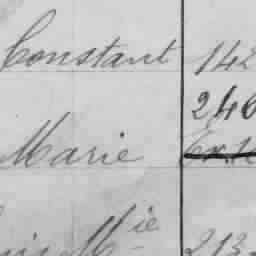 Constant 142
246
Marie
Mie 213